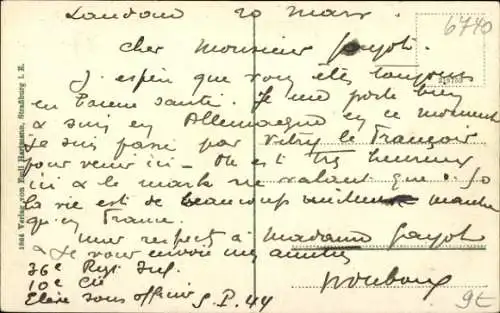 Landau 20 Mars
6740
Cher Monsieur Gayot.
J'espère que vous êtes toujours
en bonne santé. Je me porte bien
& suis en Allemagne en ce moment
Je suis passé par Vitry le François
pour venir ici — On est très heureux
ici & le mark ne valant que 0.50
la vie est de beaucoup meilleur marché
qu'en France.
Mes respects à Madame Gayot
& Je vous envoie mes amitiés
36e Regt Inf.
10e Cie
Elève sous officier S.P. 44
1864 Verlag von Emil Hartmann, Straßburg i. E.
9E